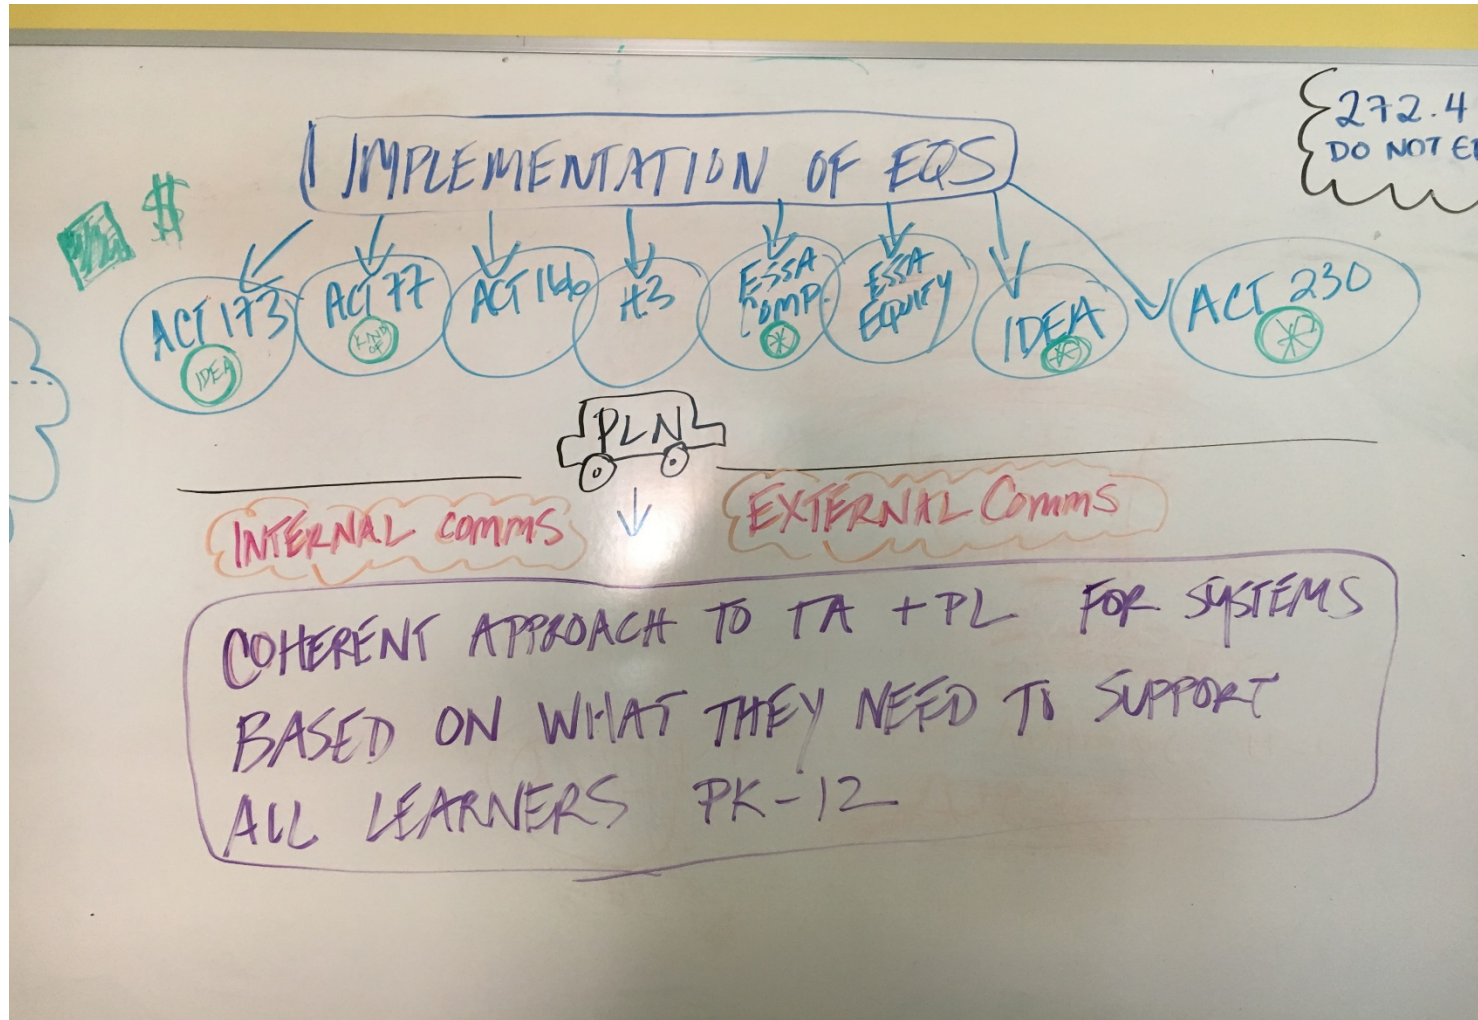 272.4
DO NOT
IMPLEMENTATION OF EQS
$
ACT 173
IDEA
ACT 77
KIND
OF
ACT 166
ESSA
COMP.
*
ESSA
EQUITY
IDEA
*
ACT 230
*
PLN
INTERNAL COMMS
EXTERNAL COMMS
COHERENT APPROACH TO TA + PL FOR SYSTEMS
BASED ON WHAT THEY NEED TO SUPPORT
ALL LEARNERS PK-12